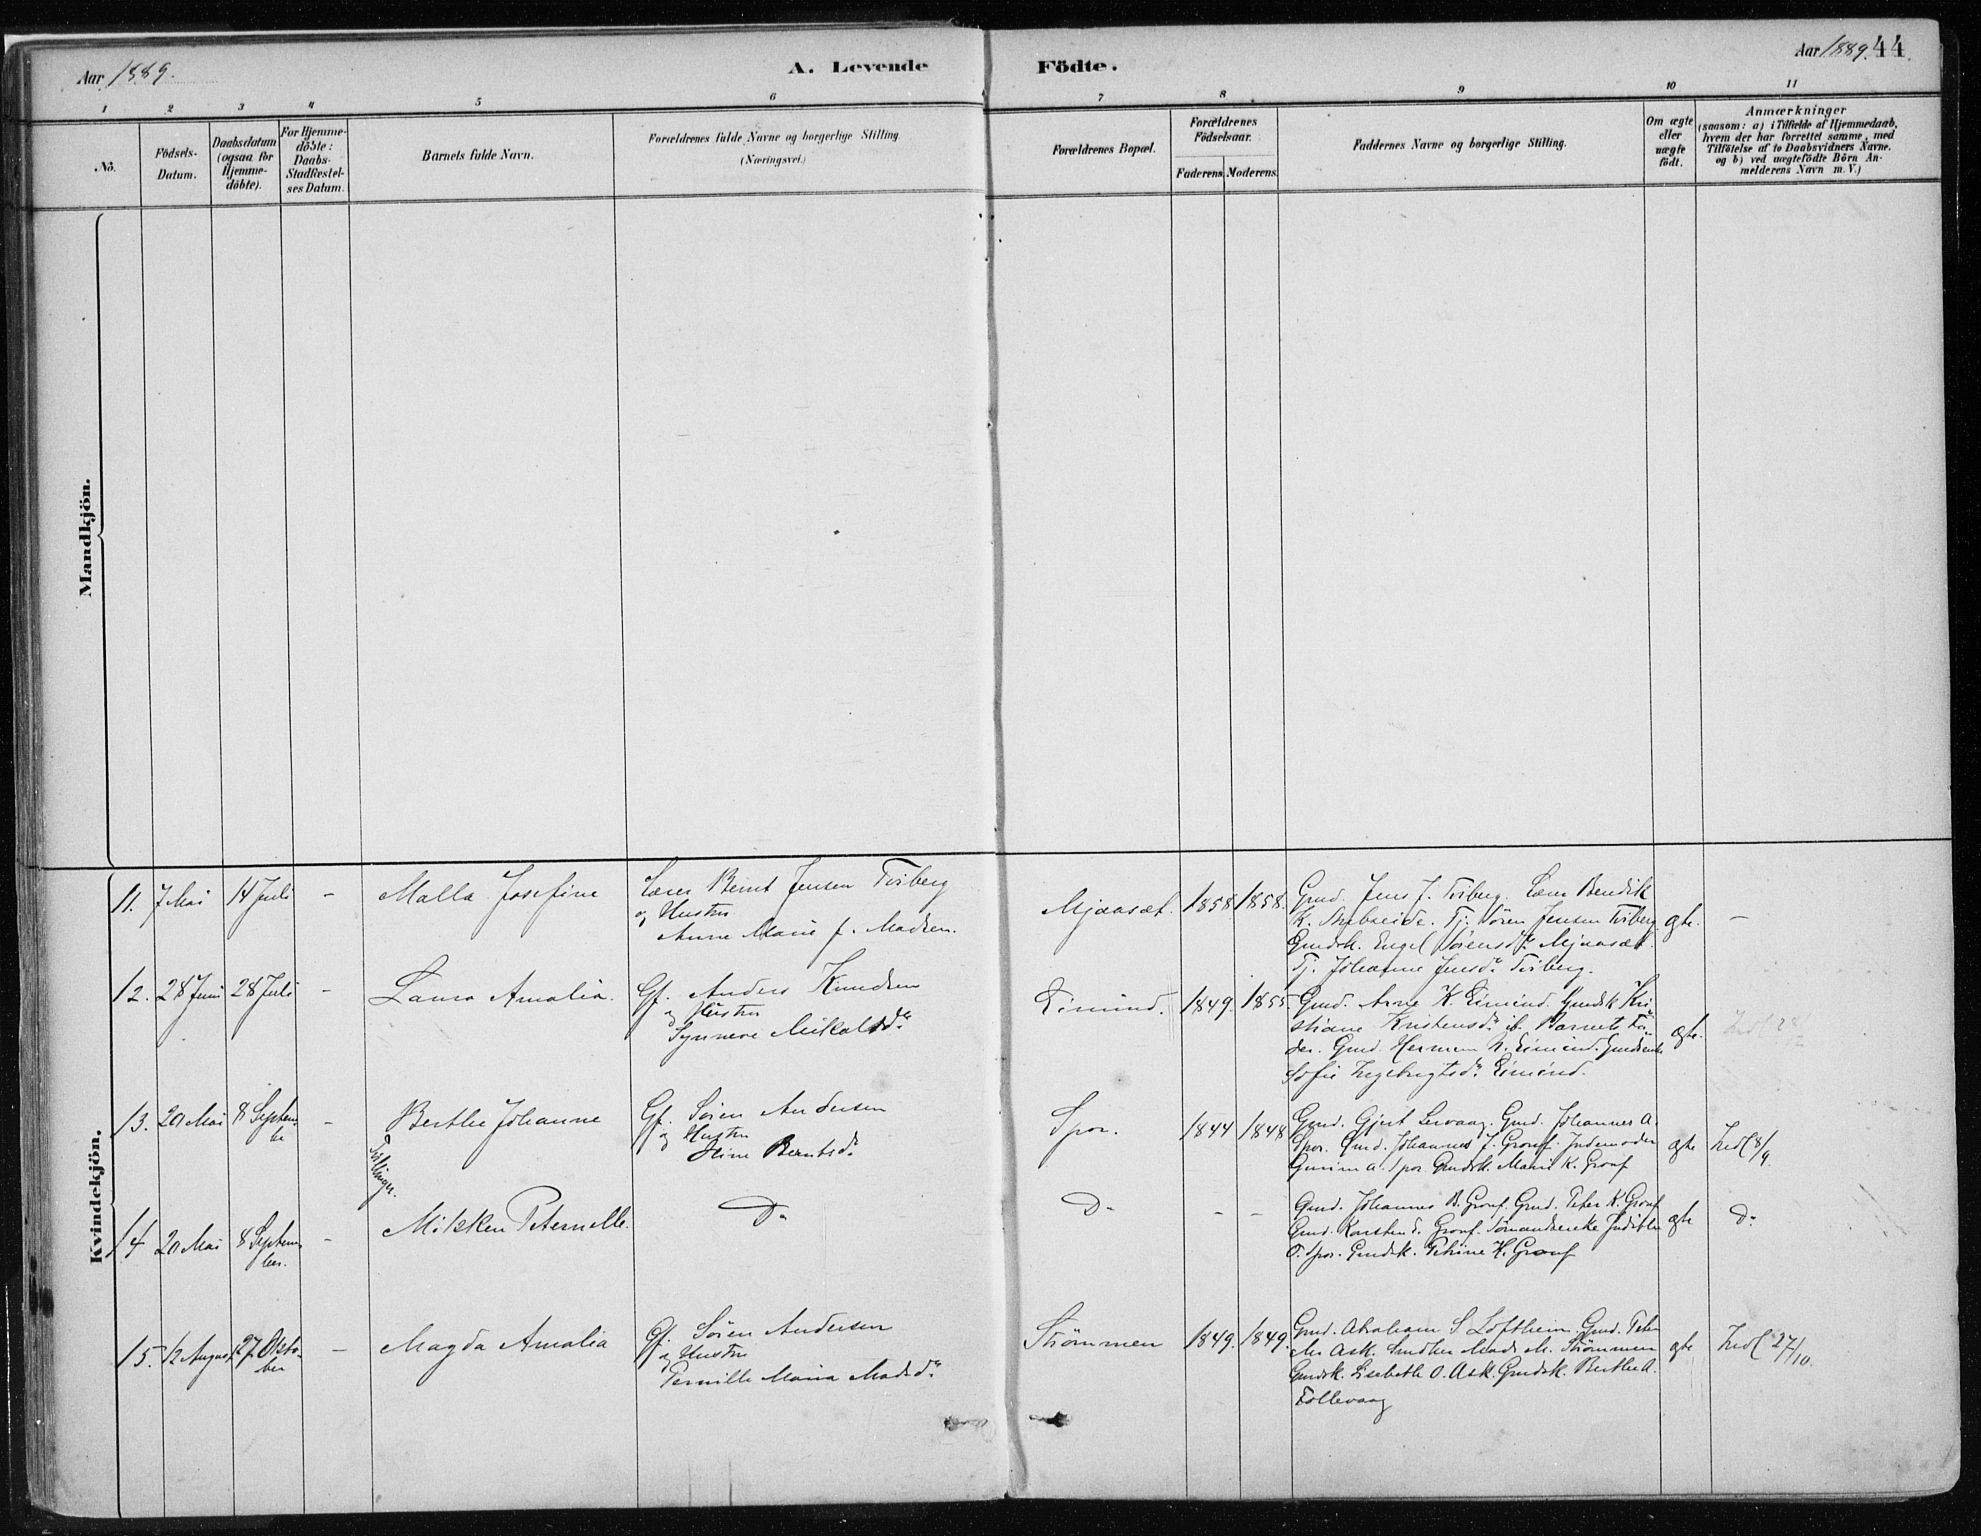 Aar 1889. A. Levende Födte. Aar 1889. 44
1 2 3 4 5 6 7 8 9 10 11
No.
Födsels-
Datum.
Daabsdatum
(ogsaa for
Hjemme-
döbte).
For Hjemme-
döbte:
Daabs-
Stadfestel-
ses Datum.
Barnets fulde Navn.
Forældrenes fulde Navne og borgerlige Stilling
(Næringsvei.)
Forældrenes Bopæl.
Forældrenes
Födselsaar.
Faderens. Moderens.
Faddernes Navne og borgerlige Stilling.
Om ægte
eller
uægte
födt.
Anmærkninger
(saasom: a) i Tilfælde af Hjemmedaab,
hvem der har forrettet samme, med
Tilföielse af to Daabsvidners Navne.
og b) ved uægtefödte Börn An-
melderens Navn m. V.)
Mandkjön.
Kvindekjön.
11. 7 Mai 14 Juli - Malla Josefine
Lærer Bernt Jensen Tviberg
og Hustru
Anne Marie f. Madsen.
Mjaasæt. 1858 1858.
Gmd. Jens J. Tviberg. Lærer Bendik
K. Tj. Sören Jensen Tviberg
Gmdsk. Engel Sörensdr Mjaasæt
Tj. Johanne Jensdr Tviberg.
ægte. -
12. 28 Juni 28 Juli - Laura Amalia.
Gf. Anders Knudsen
og Hustru
Synneve Mikalsdr
Eimind. 1849. 1855
Gmd. Arne K. Eimind. Gmdsk Kri-
stiane Kristensdr ib. Barnets Fa-
der. Gmd. Herman N. Eimind. Gmdsenke
Sofie Ingebrigtsdr Eimind.
ægte.
13. 20 Mai 8 Septem-
be - Berthe Johanne
Tvillinger.
Gf. Sören Andersen
og Hustru
Stine Berntsdr
Spor. 1844 1848
Gmd. Gjert Lervaag. Gmd. Johannes A.
Spor. Gmd. Johannes J. Grouf. Jordemoder
Gurine A. Spor. Gmdsk. Marie K. Grouf
ægte Indl 8/9.
14 20 Mai 8 Septem-
ber. - Mikken Peternelle.
Do
Do - -
Gmd. Johannes B. Grouf. Gmd. Peter K. Grouf
Gmd. Karsten S. Grouf. Sömandsenke Judithe
O. Spor. Gmdsk. Petrine H. Grouf
ægte Do
15. 12 August 27 Okto-
ber - Magda Amalia
Gf. Sören Andersen
og Hustru
Pernille Maria Madsdr
Strømmen 1849. 1849.
Gmd. Abraham S Loftheim. Gmd. Peter
M. Ask. Mads M. Strømmen
Gmdsk. Lisebeth O. Ask. Gmdsk. Berthe A.
Follevaag
ægte Indl 27/10.